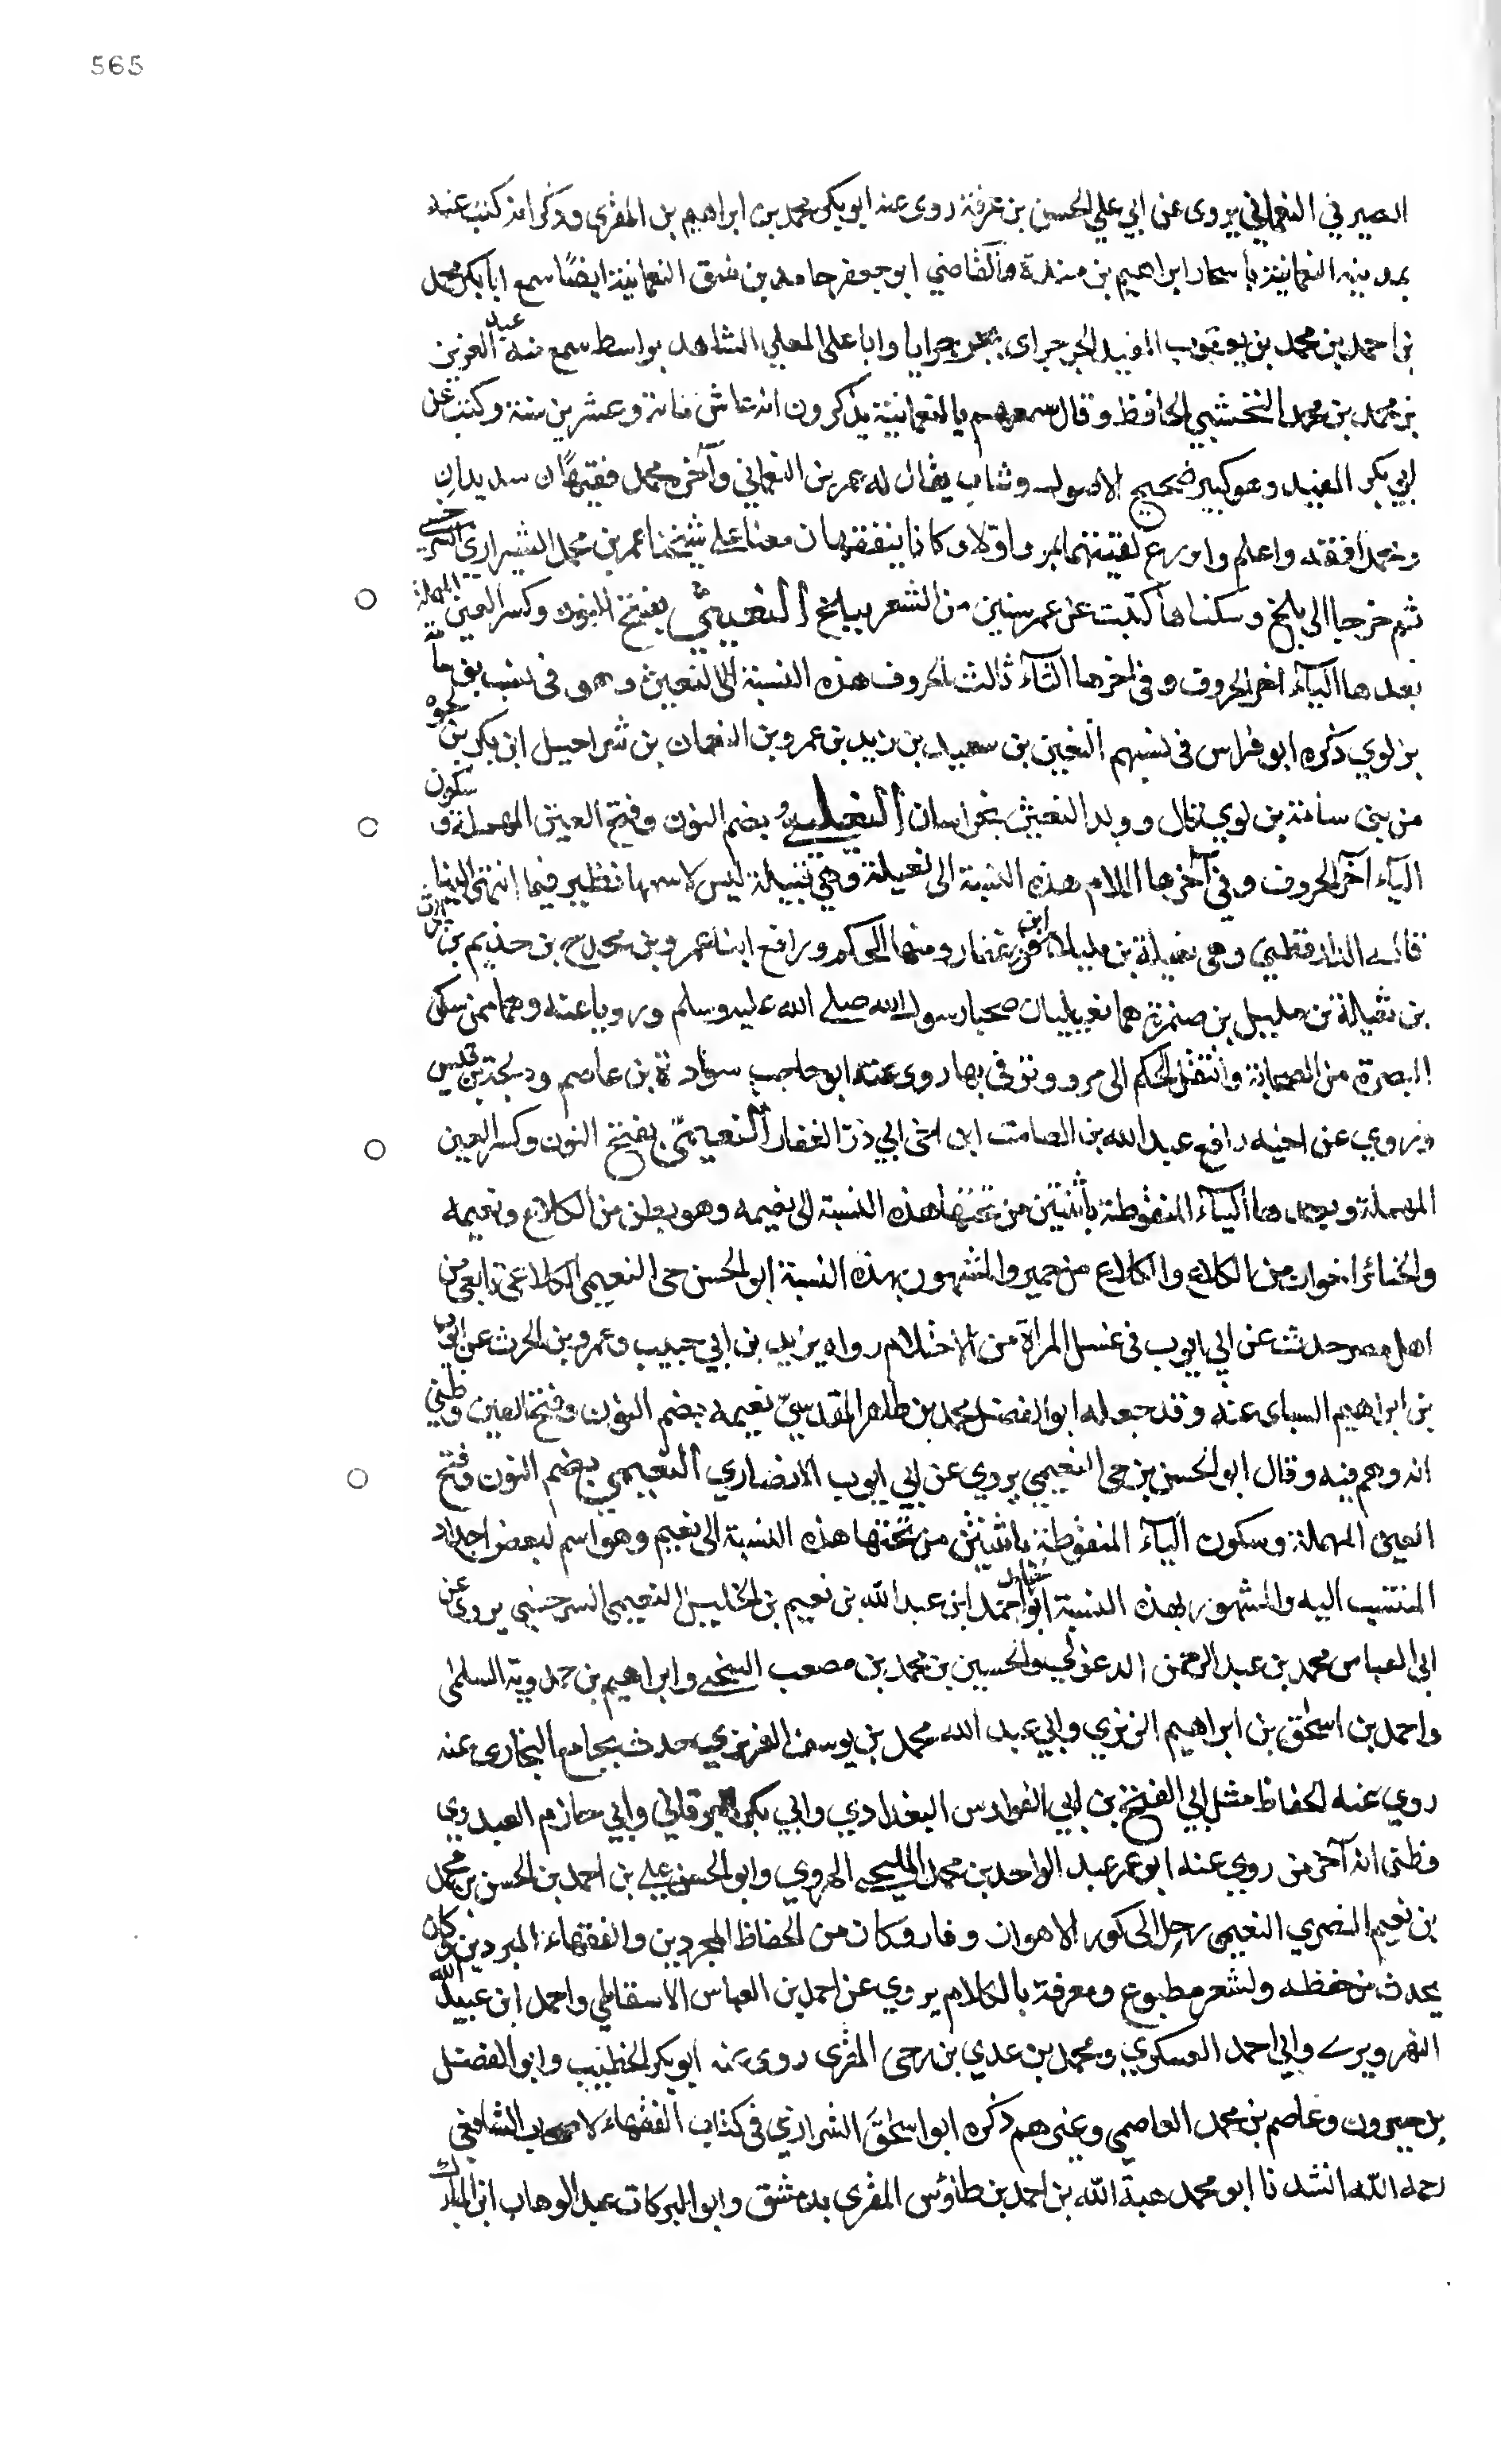 565
الصيرفي النعماني يروي عن ابي علي الحسن بن عرفة روى عنه ابو بكر محمد بن ابراهيم بن المقرى وذكر انه كتب عنه
بمدينة النعمانية ابراهيم بن مندة والقاضي ابو جعفر حامد بن النعمانية ايضًا سمع ابا بكر محمد
بن احمد بن محمد بن يعقوب المفيد الجرجراى بجرجرايا وابا على المعلي الشاهد بواسط سمع منه عبد العزيز
بن محمد بن محمد النخشبي الحافظ وقال سمعهم بالنعمانية يذكرون انه عاش مائة وعشرين سنة وكتب عن
ابي بكر المفيد وهو كبير صحيح الاصول وشاب يقال له عمر بن النعماني وآخره محمد فقيهان سديدان
ومحمد افقه واعلم واورع لقيتهما بمرو اولا وكانا يتفقهان معنا على شيخنا عمر بن محمد الشيرازي السرخسي
ثم خرجا الى بلخ وسكناها كتبت عن عمر بيتين من الشعر ببلخ النعيثي بفتح النون وكسر العين المهملة
بعدها اليآء اخر الحروف وفي اخرها الثآء ثالث الحروف هذه النسبة الى النعيث وهو في نسب
بن لوي ذكره ابو فراس في نسبهم النعيث بن سعيد بن زيد بن عمرو بن النعمان بن شراحيل ابن بكر بن
من بنى سامة بن لوي قال وولد النعيث بخراسان النعيلي بضم النون وفتح العين المهملة وسكون
اليآء آخر الحروف وفي آخرها اللام هذه النسبة الى نعيلة وهي قبيلة ليس لاسمها نظير فيما انتهى الينا
قاله الدارقطني وهى نعيلة بن مليل ابن غفار ومنها الحكم ورافع ابنا عمرو بن مجدح بن حذيم بن الحرث
بن نعيلة بن مليل بن ضمرة هما نعيليان صحبا رسول الله صلى الله عليه وسلم ورويا عنه وهما ممن سكن
البصرة من الصحابة وانتقل الحكم الى مرو وتوفى بها روى عنه ابو حاجب سوادة بن عاصم ودلجة بن قيس
ويروي عن اخيه رافع عبد الله بن الصامت ابن اخى ابي ذر الغفار النعيمي بفتح النون وكسر العين
المهملة وبعدها اليآء المنقوطة باثنتين من تحتها هذه النسبة الى نعيمه وهو بطن من الكلاع ونعيمه
والخبائر اخوان من الكلاع والكلاع من حمير والمشهور بهذه النسبة ابو الحسن حى النعيمى الكلاعى تابعى من
اهل مصر حدث عن ابي ايوب في غسل المراة من الاحتلام رواه يزيد بن ابي حبيب وعمرو بن الحرث عن
بن ابراهيم السباى عنه وقد جعله ابو الفضل محمد بن طاهر المقدسي نعيمه بضم النون وفتح العين وظني
انه وهم فيه وقال ابو الحسن بن حى النعيمي يروي عن ابي ايوب الانصاري النعيمي بضم النون وفتح
العين المهملة وسكون اليآء المنقوطة باثنتين من تحتها هذه النسبة الى نعيم وهو اسم لبعض اجداد
المنتسب اليه والمشهور بهذه النسبة ابو احمد ابن عبد الله بن نعيم بن الخليل النعيمى السرخسي يروي عن
ابي العباس محمد بن عبد الرحمن الدغولي والحسين بن محمد بن مصعب السنجي وابراهيم بن حمدويه السلمى
واحمد بن اسحق بن ابراهيم وابي عبد الله محمد بن يوسف الفربري حدث بجامع البخارى عنه
روي عنه الحفاظ مثل ابي الفتح بن ابي الفوارس البغدادي وابي بكر البرقاني وابي حازم العبدوي
وظنى انه آخر من روي عنه ابو عمر عبد الواحد بن محمد المليحي الهروي وابو الحسن علي بن احمد بن الحسن بن محمد
بن نعيم البصري النعيمى رحل الى كور الاهواز وفارس وكان من الحفاظ المجردين والفقهاء المبردين وكان
يحدث من حفظه ولشعر مطبوع ومعرفة بالكلام يروي عن احمد بن العباس الاسفاطي واحمد ابن عبيد الله
النهرويري وابي احمد العسكري ومحمد بن عدي بن زحر المقرى روى عنه ابو بكر الخطيب وابو الفضل
بن خيرون وعاصم بن محمد العاصمي وغيرهم ذكره ابو اسحق الشيرازي في كتاب الفقهاء لاصحاب الشافعي
رحمه الله انشدنا ابو محمد هبة الله بن احمد بن طاؤس المقرى بدمشق وابو البركات عبد الوهاب ابن المبارك